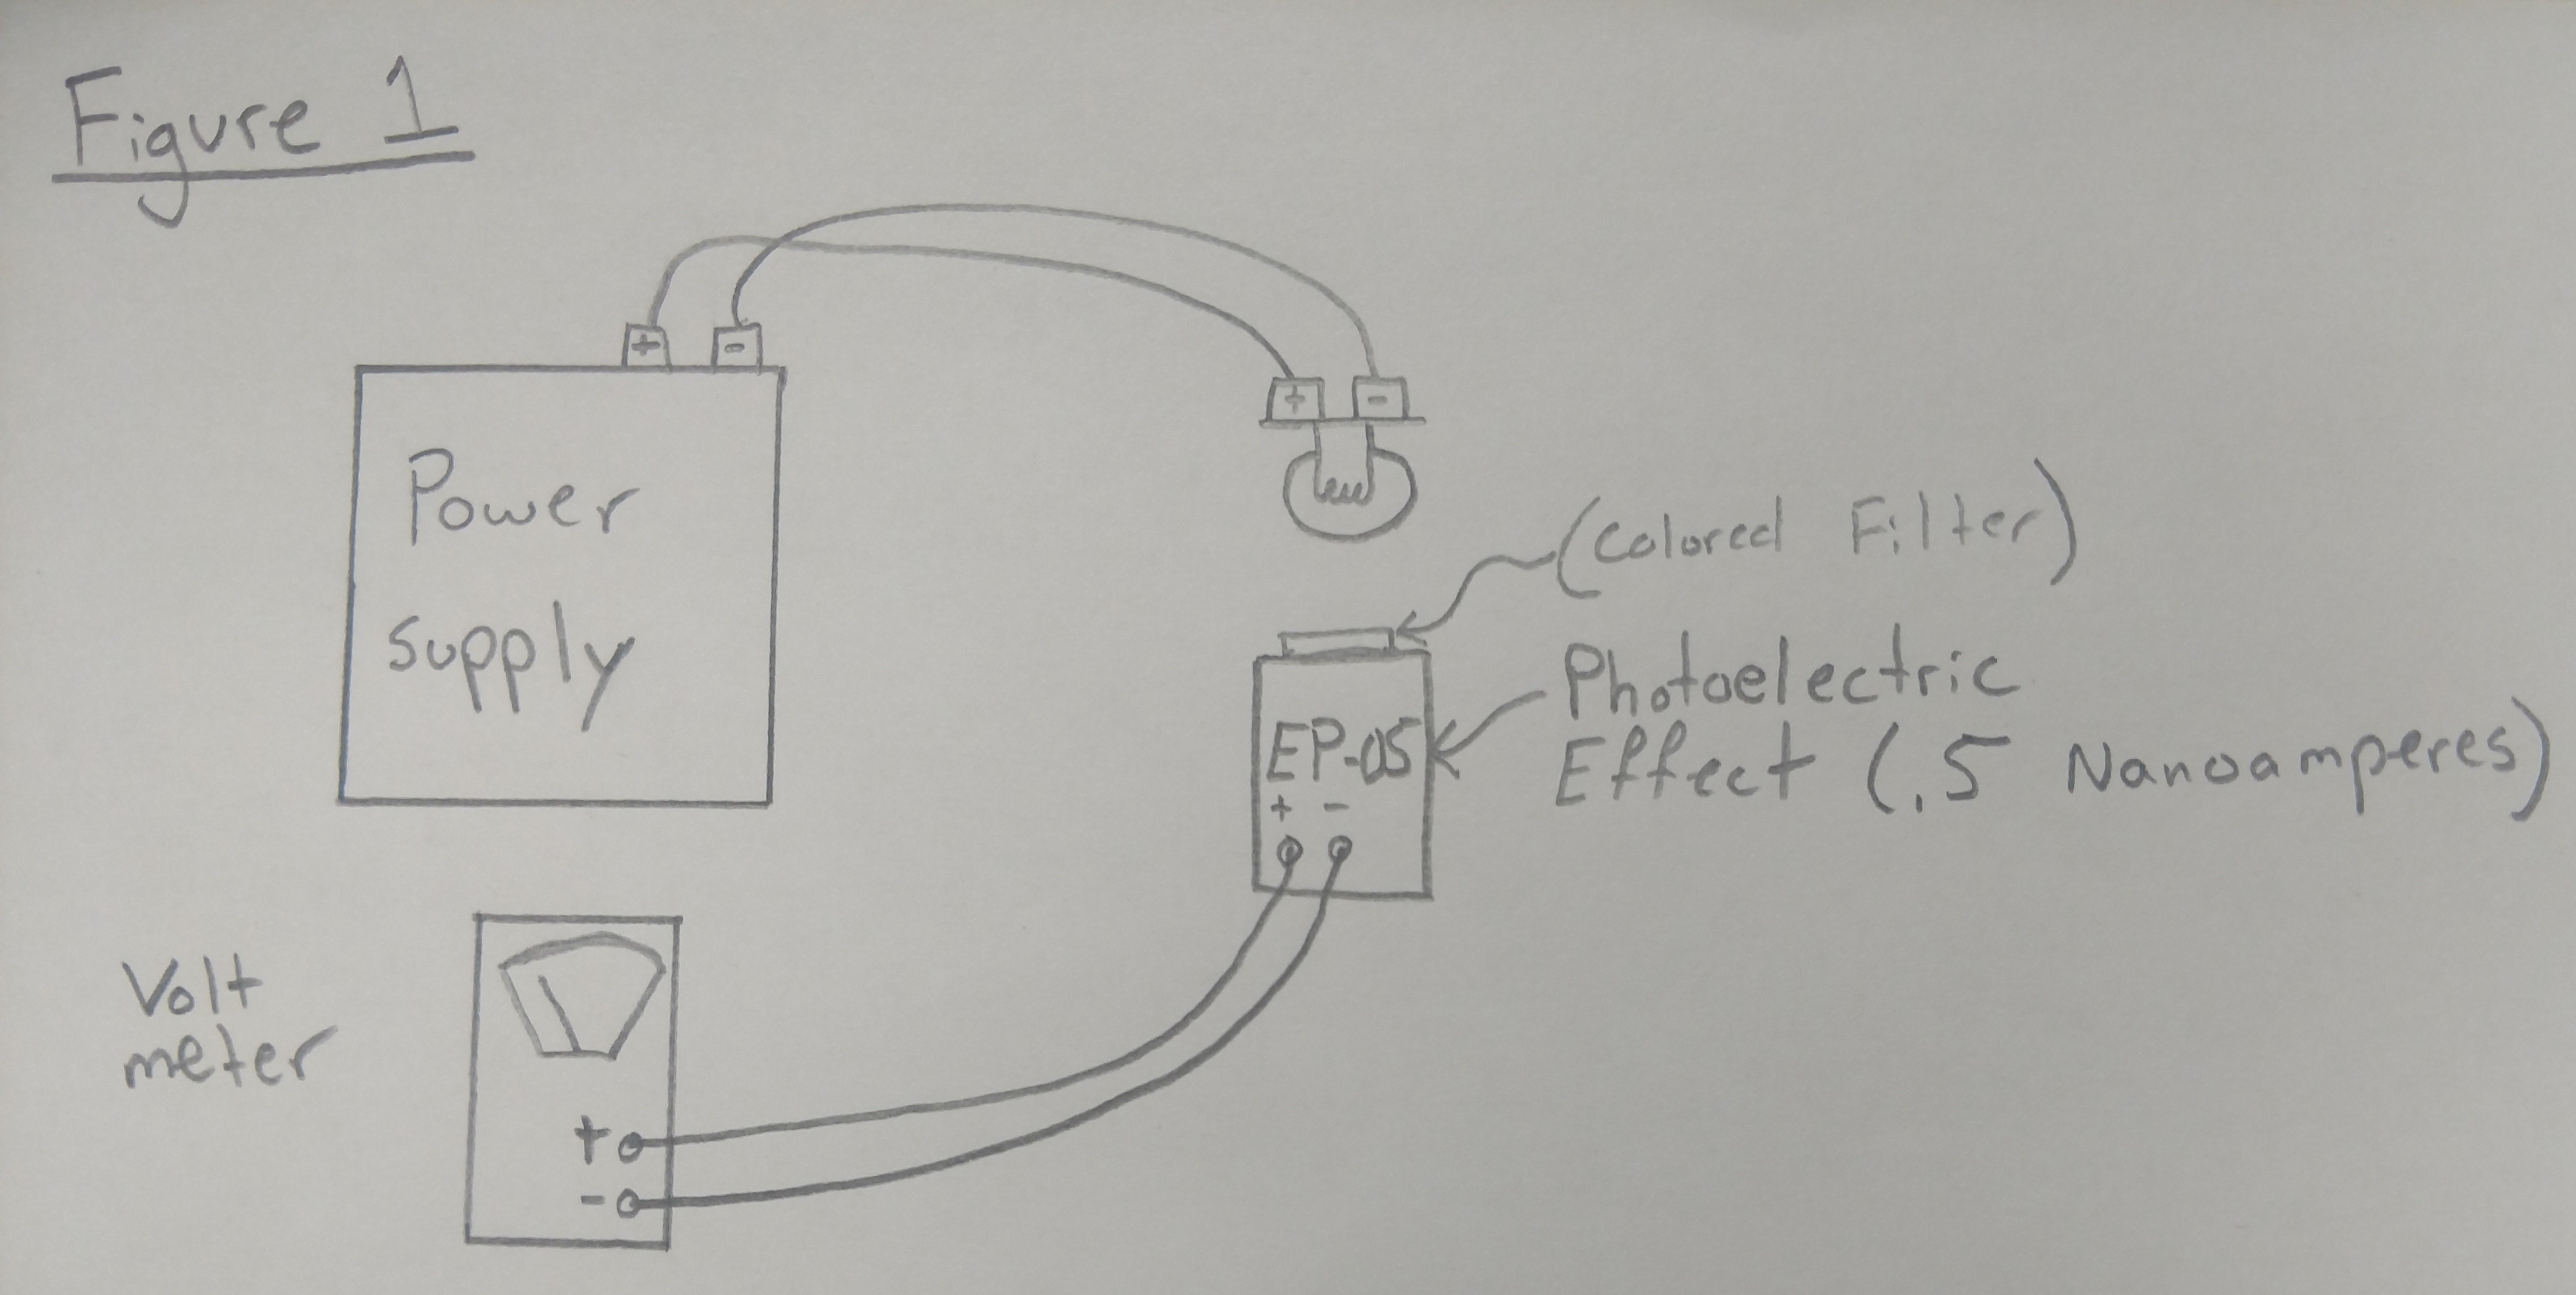 Figure 1
+ -
Power
supply
+ -
(Colored Filter)
Photoelectric
Effect (.5 Nanoamperes)
EP-05
+ -
Volt
meter
+
-